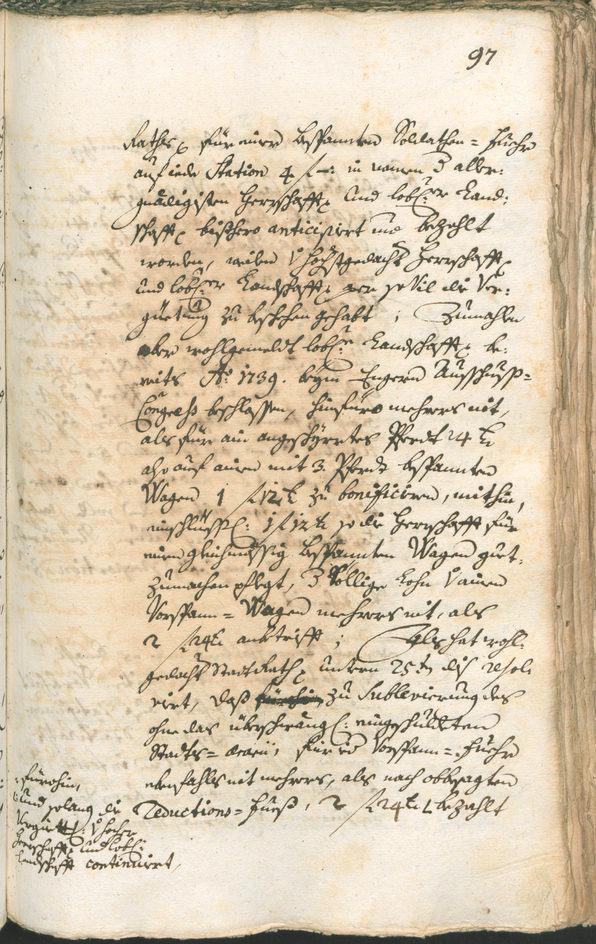 97
Raths für einer bespannten Soldathen= Fuehr
auf iede Station 4 f —: in namen d aller:
gnädigisten Herrschafft und lobl: Land:
schafft bißhero anticipirt und bezahlt
worden, weilen höchstgedacht Herrschafft
und lobl: Landschafft so vil die Ver:
güetung zu beschehen gehabt; Zumahlen
aber wohlgemeldt lobl: Landschafft be:
reits Aõ: 1739. beym Engern Ausschuß=
Congress beschlossen, hinfüro mehrers nit,
als für ain angeschyrrtes Pferdt 24 kr
also auf ainen mit 3. Pferdt bespannten
Wagen 1 f 12 kr zu bonificiren, mithin,
einschlüssl: 1 f 12 kr so die Herrschafft für
einen gleichmässig bespannten Wagen guet=
zumachen pflegt, d völlige Lohn ainen
Vorspann= Wagen mehrers nit, als
2 f 24 kr antrifft; Als hat wohl=
gedacht Stadt Rath untern 25ten diß resol
virt, daß zu Sublevierung des
ohne das überschwängl: eingeschuldeten
Stadts= für ein Vorspann= Fuehr
ebenfahls nit mehrers, als nach obbesagten
Reductions= Fueß, 2 f 24 kr bezahlt
fürohin,
und solang die
Vergüettung hocher
Herrschafft und lobl:
Landschafft continuirt,